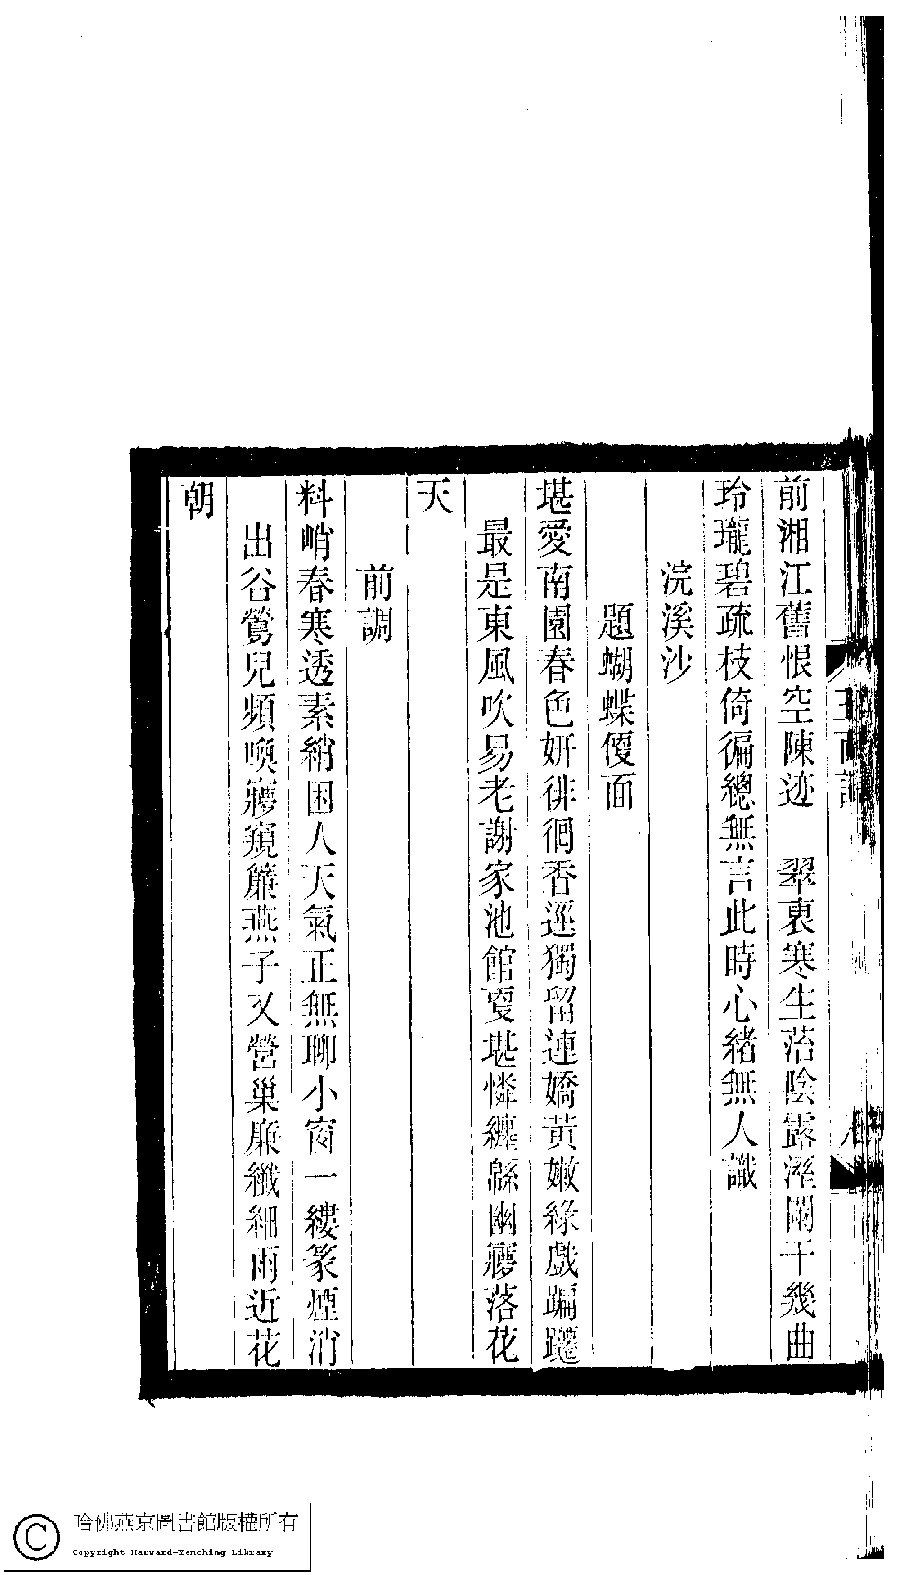 前湘江舊恨空陳迹　翠裏寒生落陰露溼闌干幾曲
玲瓏碧疏枝倚徧總無言此時心緒無人識
浣溪沙
題蝴蝶便面
堪愛南園春色妍徘徊香逕獨留連嬌黃嫩綠戲蹁躚
最是東風吹易老謝家池館更堪憐纏緜幽夢落花
天
前調
料峭春寒透素綃困人天氣正無聊小窗一縷篆煙消
出谷鶯兒頻喚夢窺簾燕子又營巢廉纖細雨近花
朝
哈佛燕京圖書館版權所有
Copyright Harvard-Yenching Library